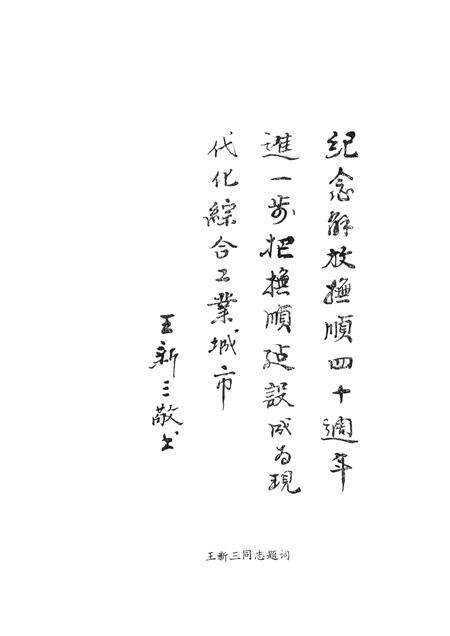 紀念解放撫順四十週年
進一步把撫順建設成为現
代化綜合工業城市
王新三敬书
王新三同志题词